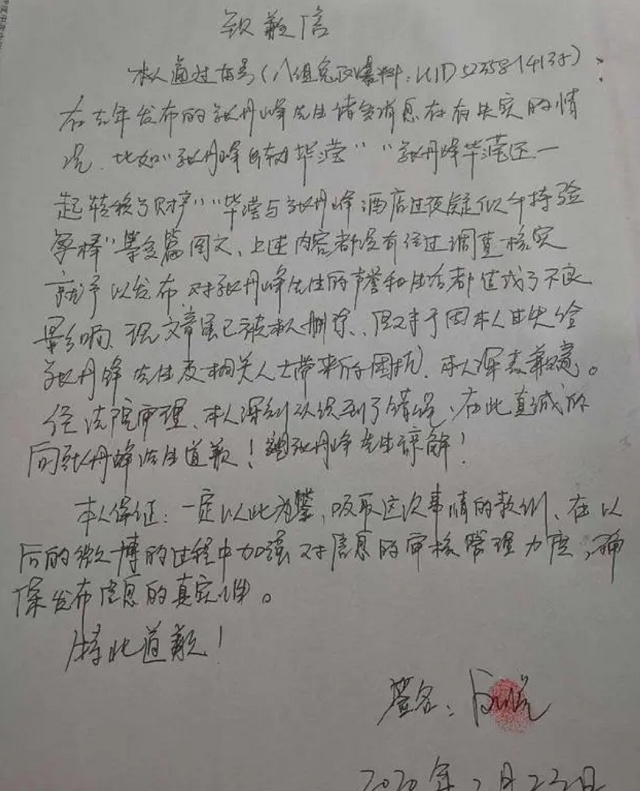 致歉信
本人通过古号(八组兔区爆料:UID 5235814135)
在去年发布的张丹峰先生诸多消息存有失实的情
况.比如"张丹峰 毕滢""张丹峰毕滢还一
起转移了财产""毕滢与张丹峰酒店过夜疑似个持验
等多篇图文,上述内容都没有经过调查核实
就予以发布.对张丹峰先生的声誉和生活都造成了不良
影响.现文章虽已被本人删除.但对于因本人过失给
张丹峰先生及相关人士带来的困扰.本人深表歉意。
经法院审理,本人深刻认识到了错误,在此真诚的
向张丹峰先生道歉!望张丹峰先生谅解!
本人保证:一定以此为鉴,吸取这次事情的教训、在以
后的微博的过程中加强对信息的审核管理力度,确
保发布信息的真实性。
特此道歉!
签名:
2020年2月23日